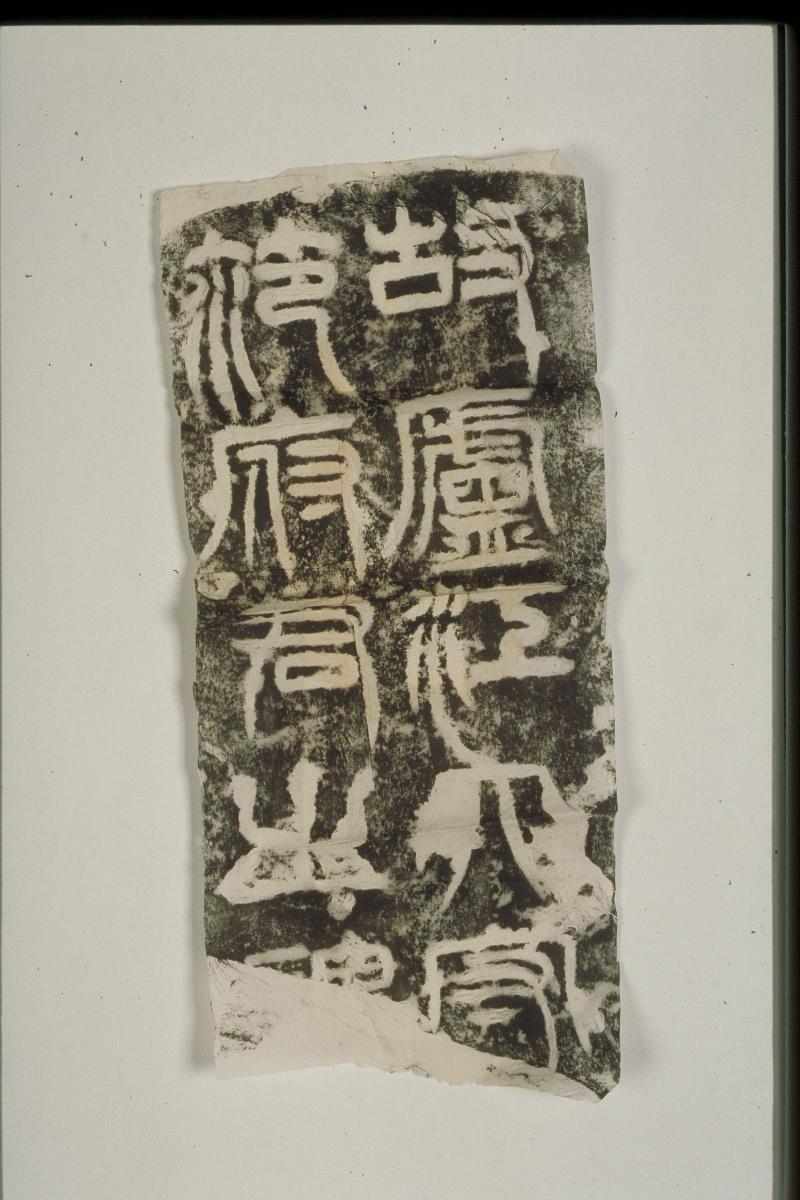 故廬江太守
范府君之碑